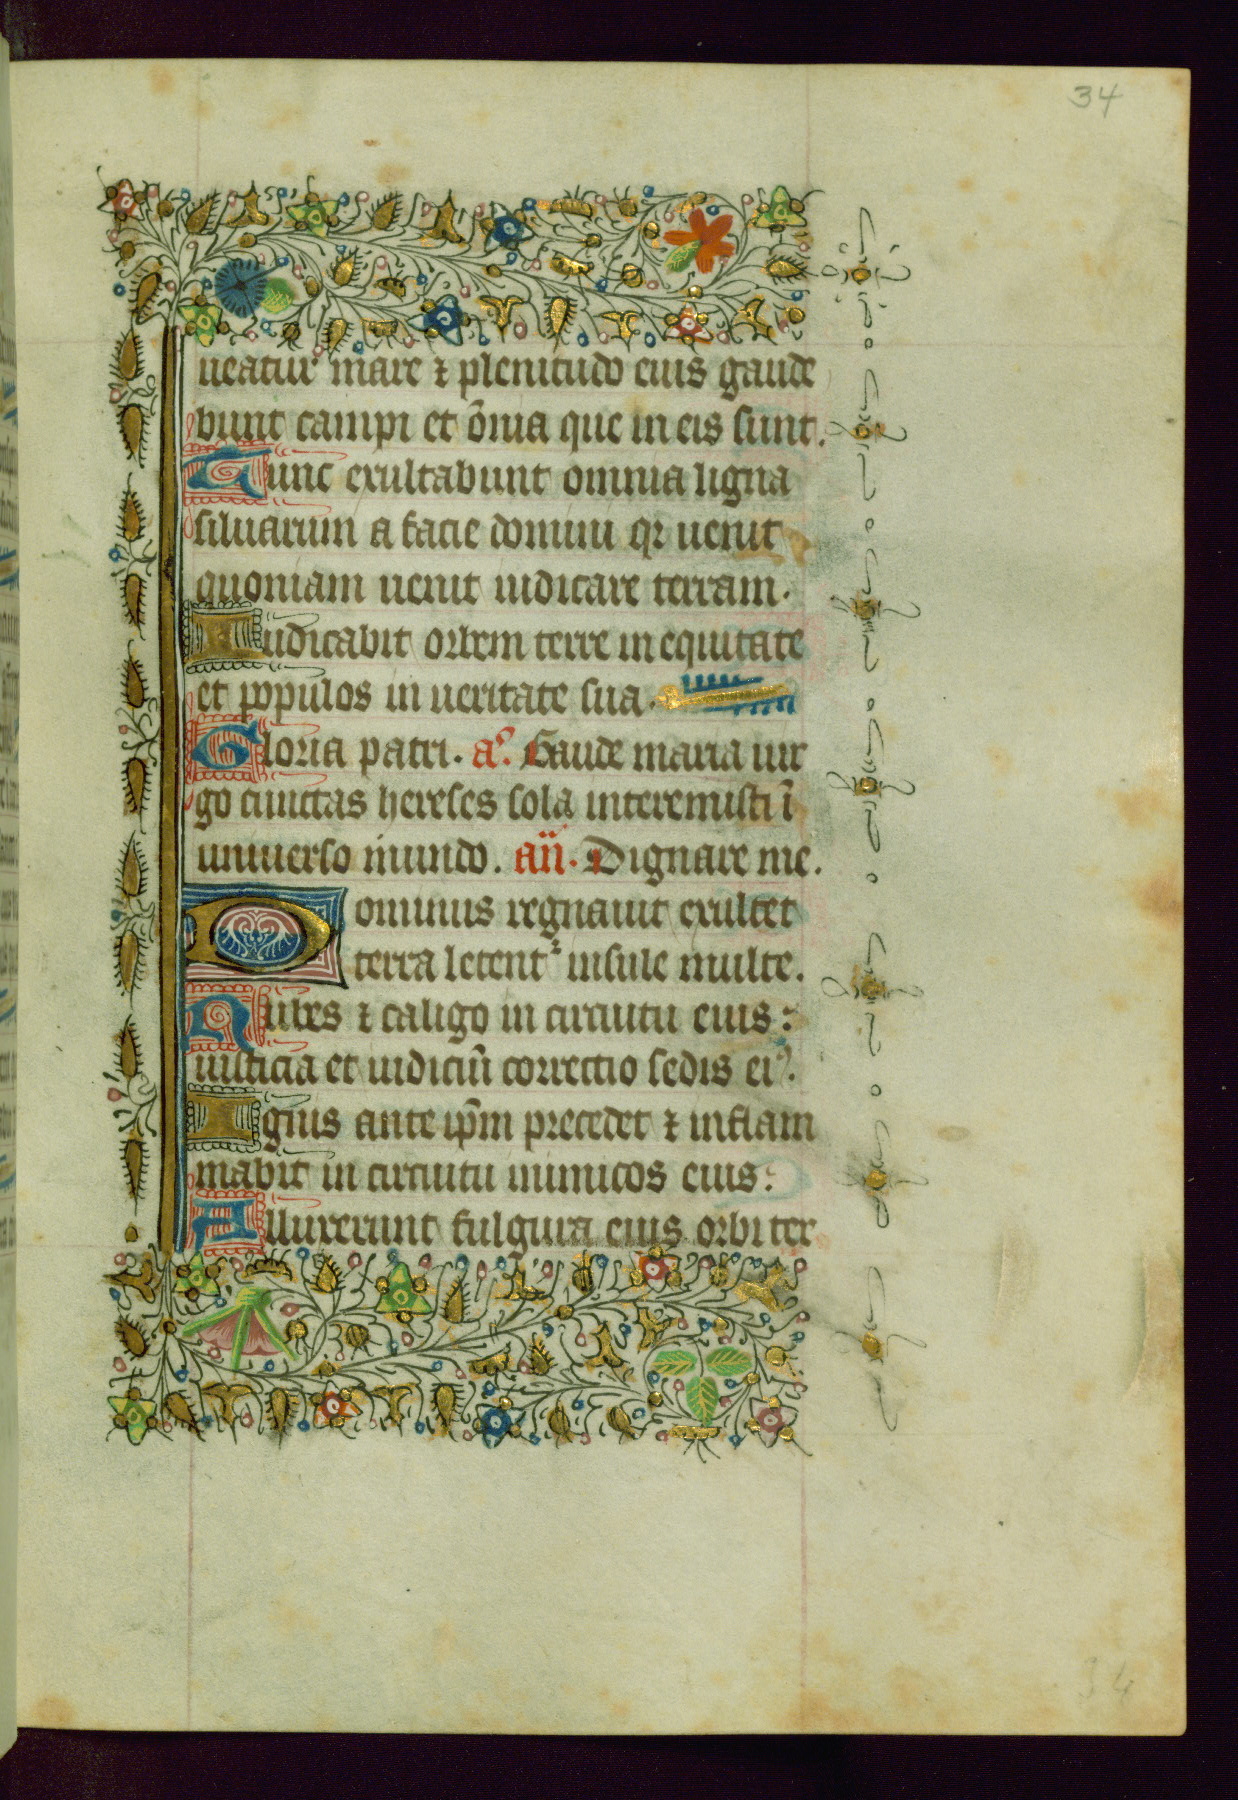 34
ueatur mare ⁊ plenitudo eius gaude
bunt campi et õnia que in eis sunt.
Tunc exultabunt omnia ligna
siluarum a facie domini qr uenit
quoniam uenit iudicare terram.
Iudicabit orbem terre in equitate
et populos in ueritate sua.
Gloria patri. aꝰ. Gaude maria uir
go cunctas hereses sola interemisti ī
uniuerso mundo. añ. Dignare me.
Dominus regnauit exultet
terra letentʳ insule multe.
Nubes ⁊ caligo in circuitu eius:
iusticia et iudiciū correctio sedis eiꝰ.
Ignis ante ip̃m precedet ⁊ inflam
mabit in circuitu inimicos eius:
Alluxerunt fulgura eius orbi ter
34